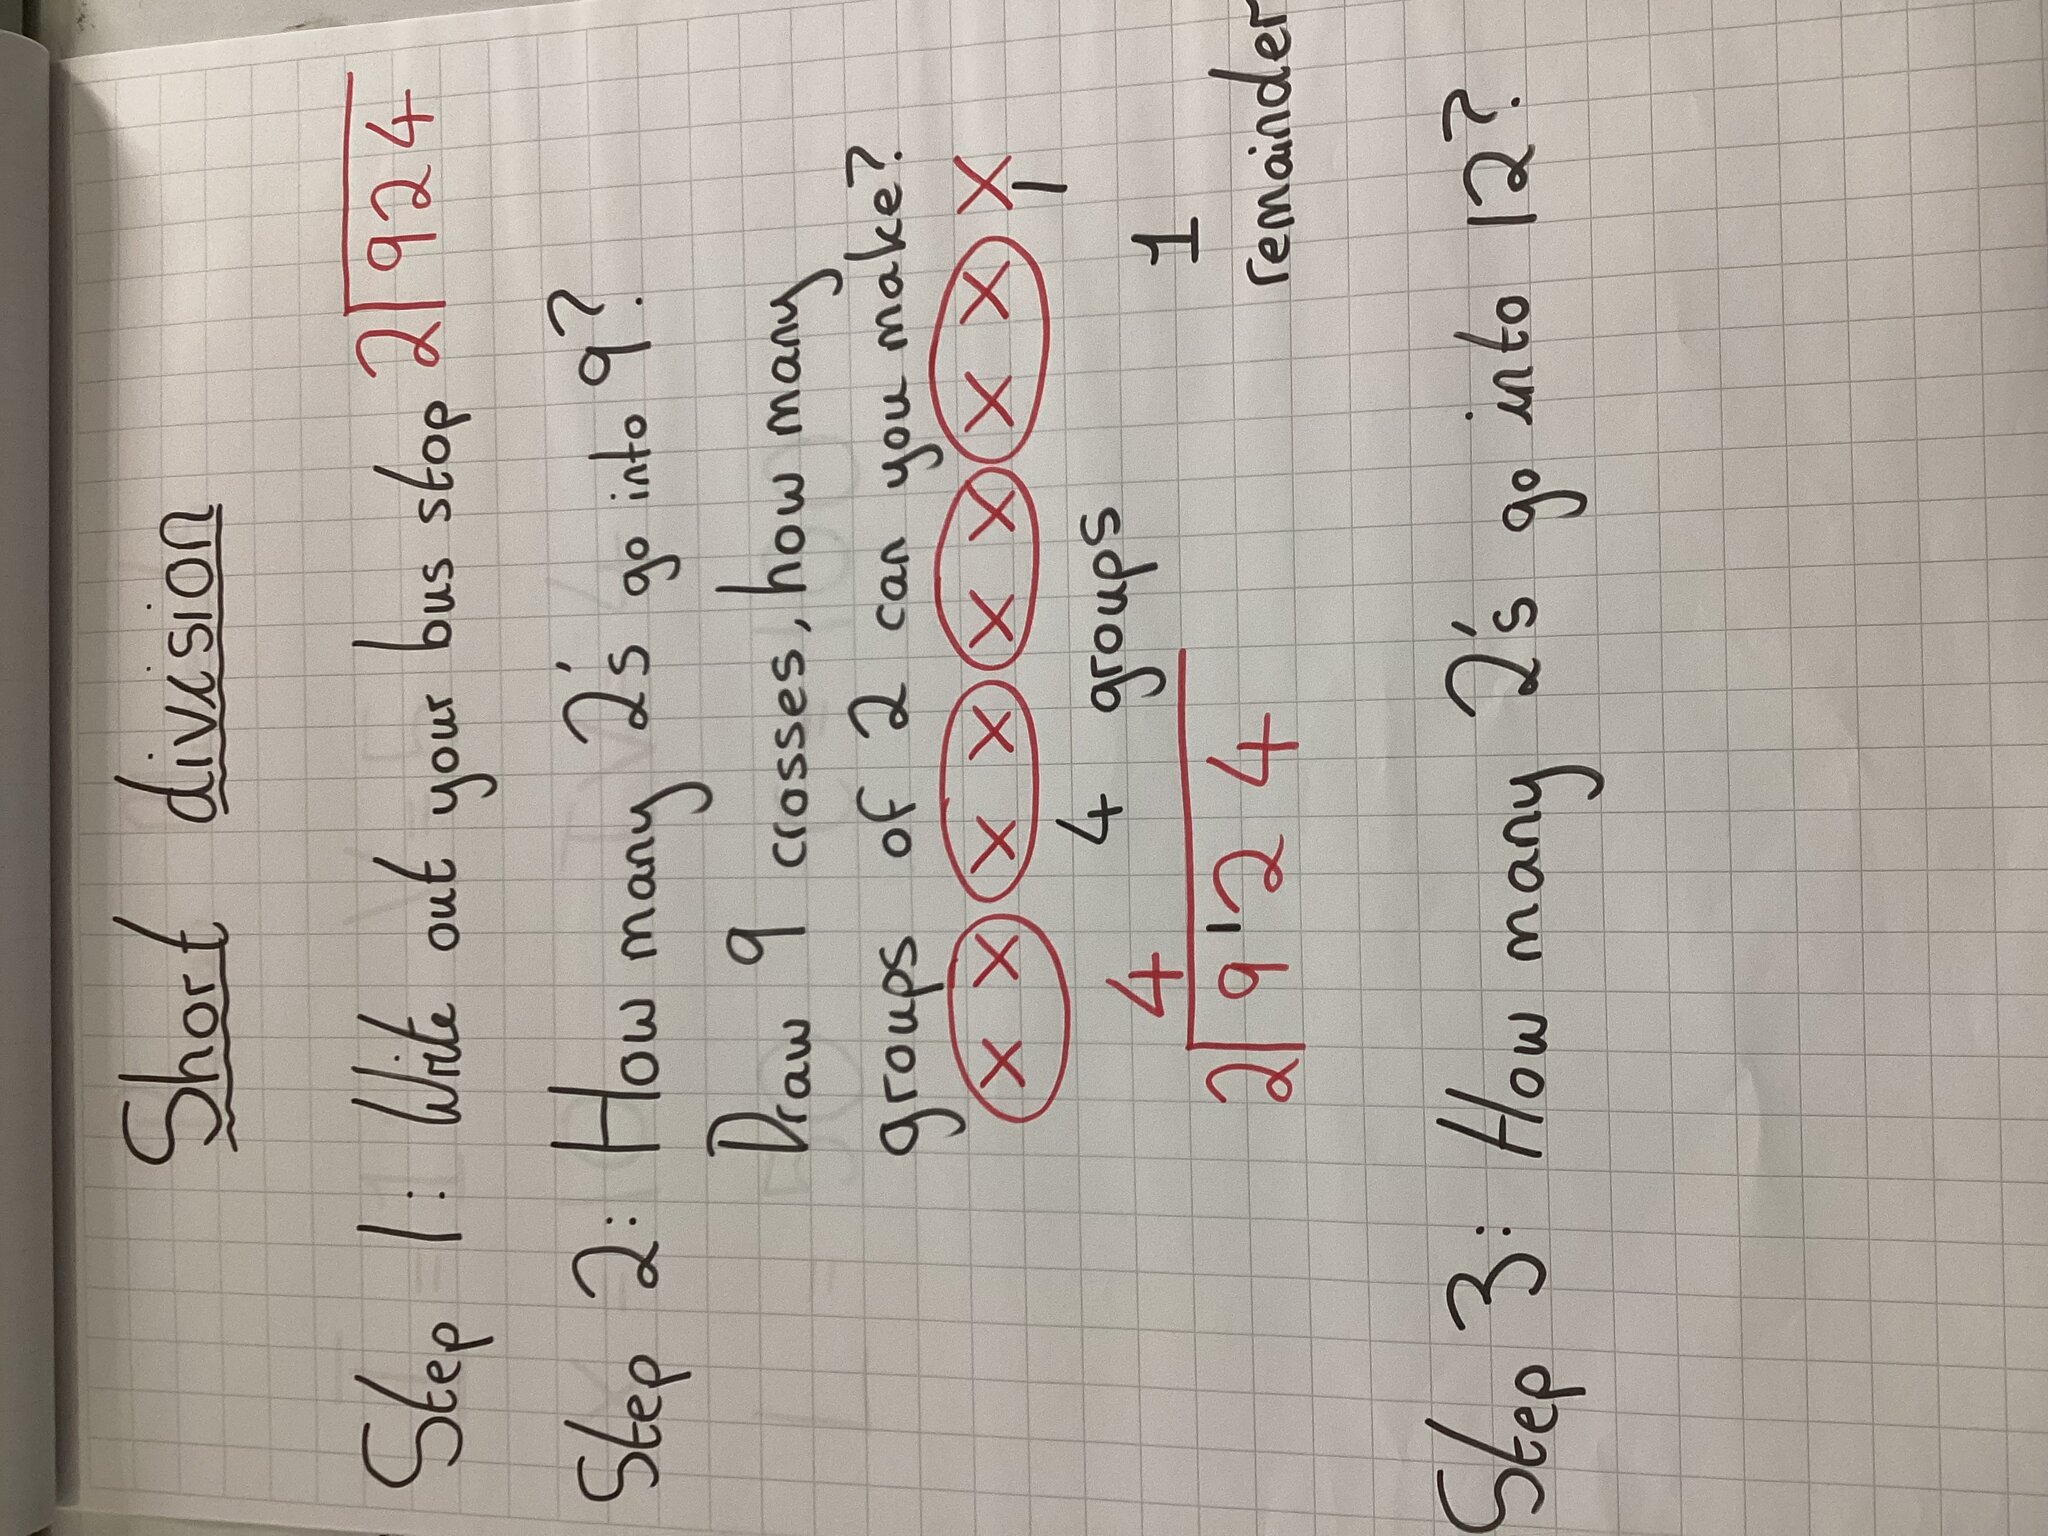 Short division
Step 1: Write out your bus stop 2 924
Step 2: How many 2's go into 9?
Draw 9 crosses, how many
groups of 2 can you make?
x x x x x x x x x
1
4 groups
4
1
2 9 1 2 4
remainder
Step 3: How many 2's go into 12?